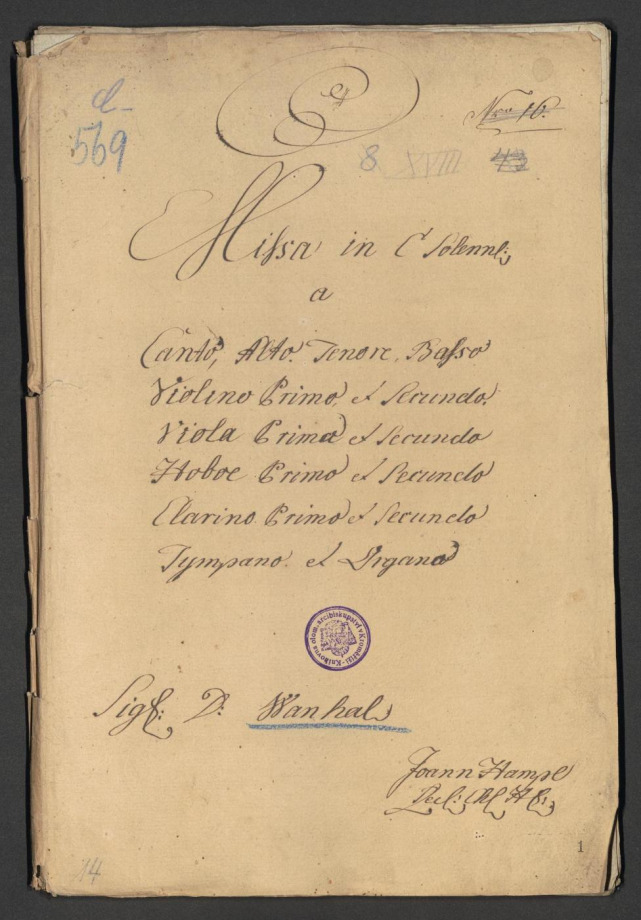 Nro 16.
569
8 XVIII 43
Missa in C Solenne:
a
Canto, Alto. Tenore. Basso
Violino Primo. et Secundo.
Viola Primo et Secundo
Hoboe Primo et Secundo
Clarino Primo et Secundo
Tympano. et Organo
Knihovna olom. arcibiskupství v Kroměříži
Sigł: D: Wanhal
Joann Hampe
1
14